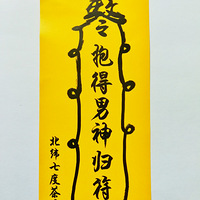 令抱得男神归符
北纬七度茶